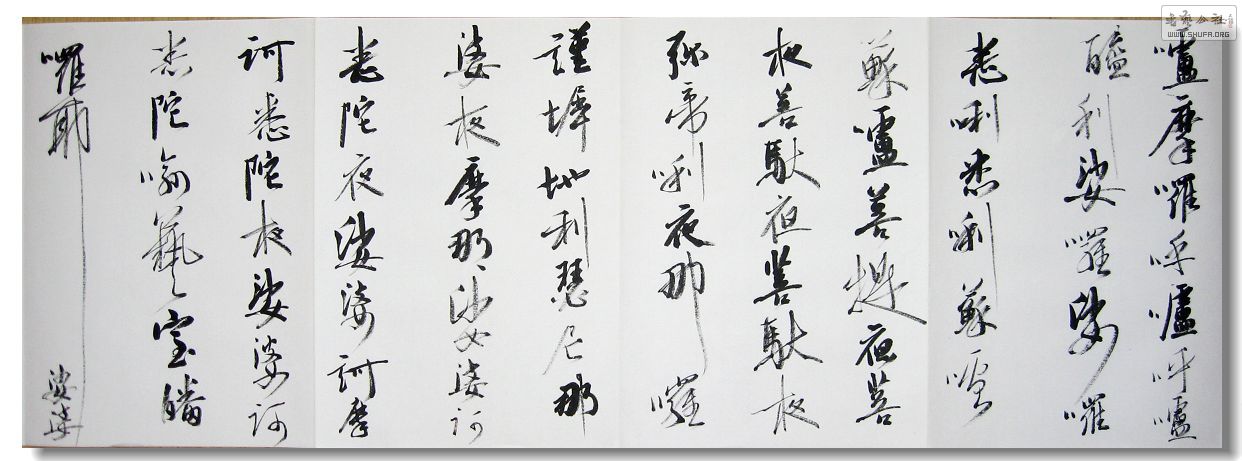 嚧摩囉呼嚧呼嚧
醯利娑囉娑囉
悉唎悉唎蘇嚧
蘇嚧菩提夜菩
夜菩馱夜菩馱夜
彌帝唎夜那囉
謹墀地利瑟尼那
婆夜摩那娑婆訶
悉陀夜娑婆訶摩
訶悉陀夜娑婆訶
悉陀喻藝室皤
囉耶娑婆
WWW.SHUFA.ORG